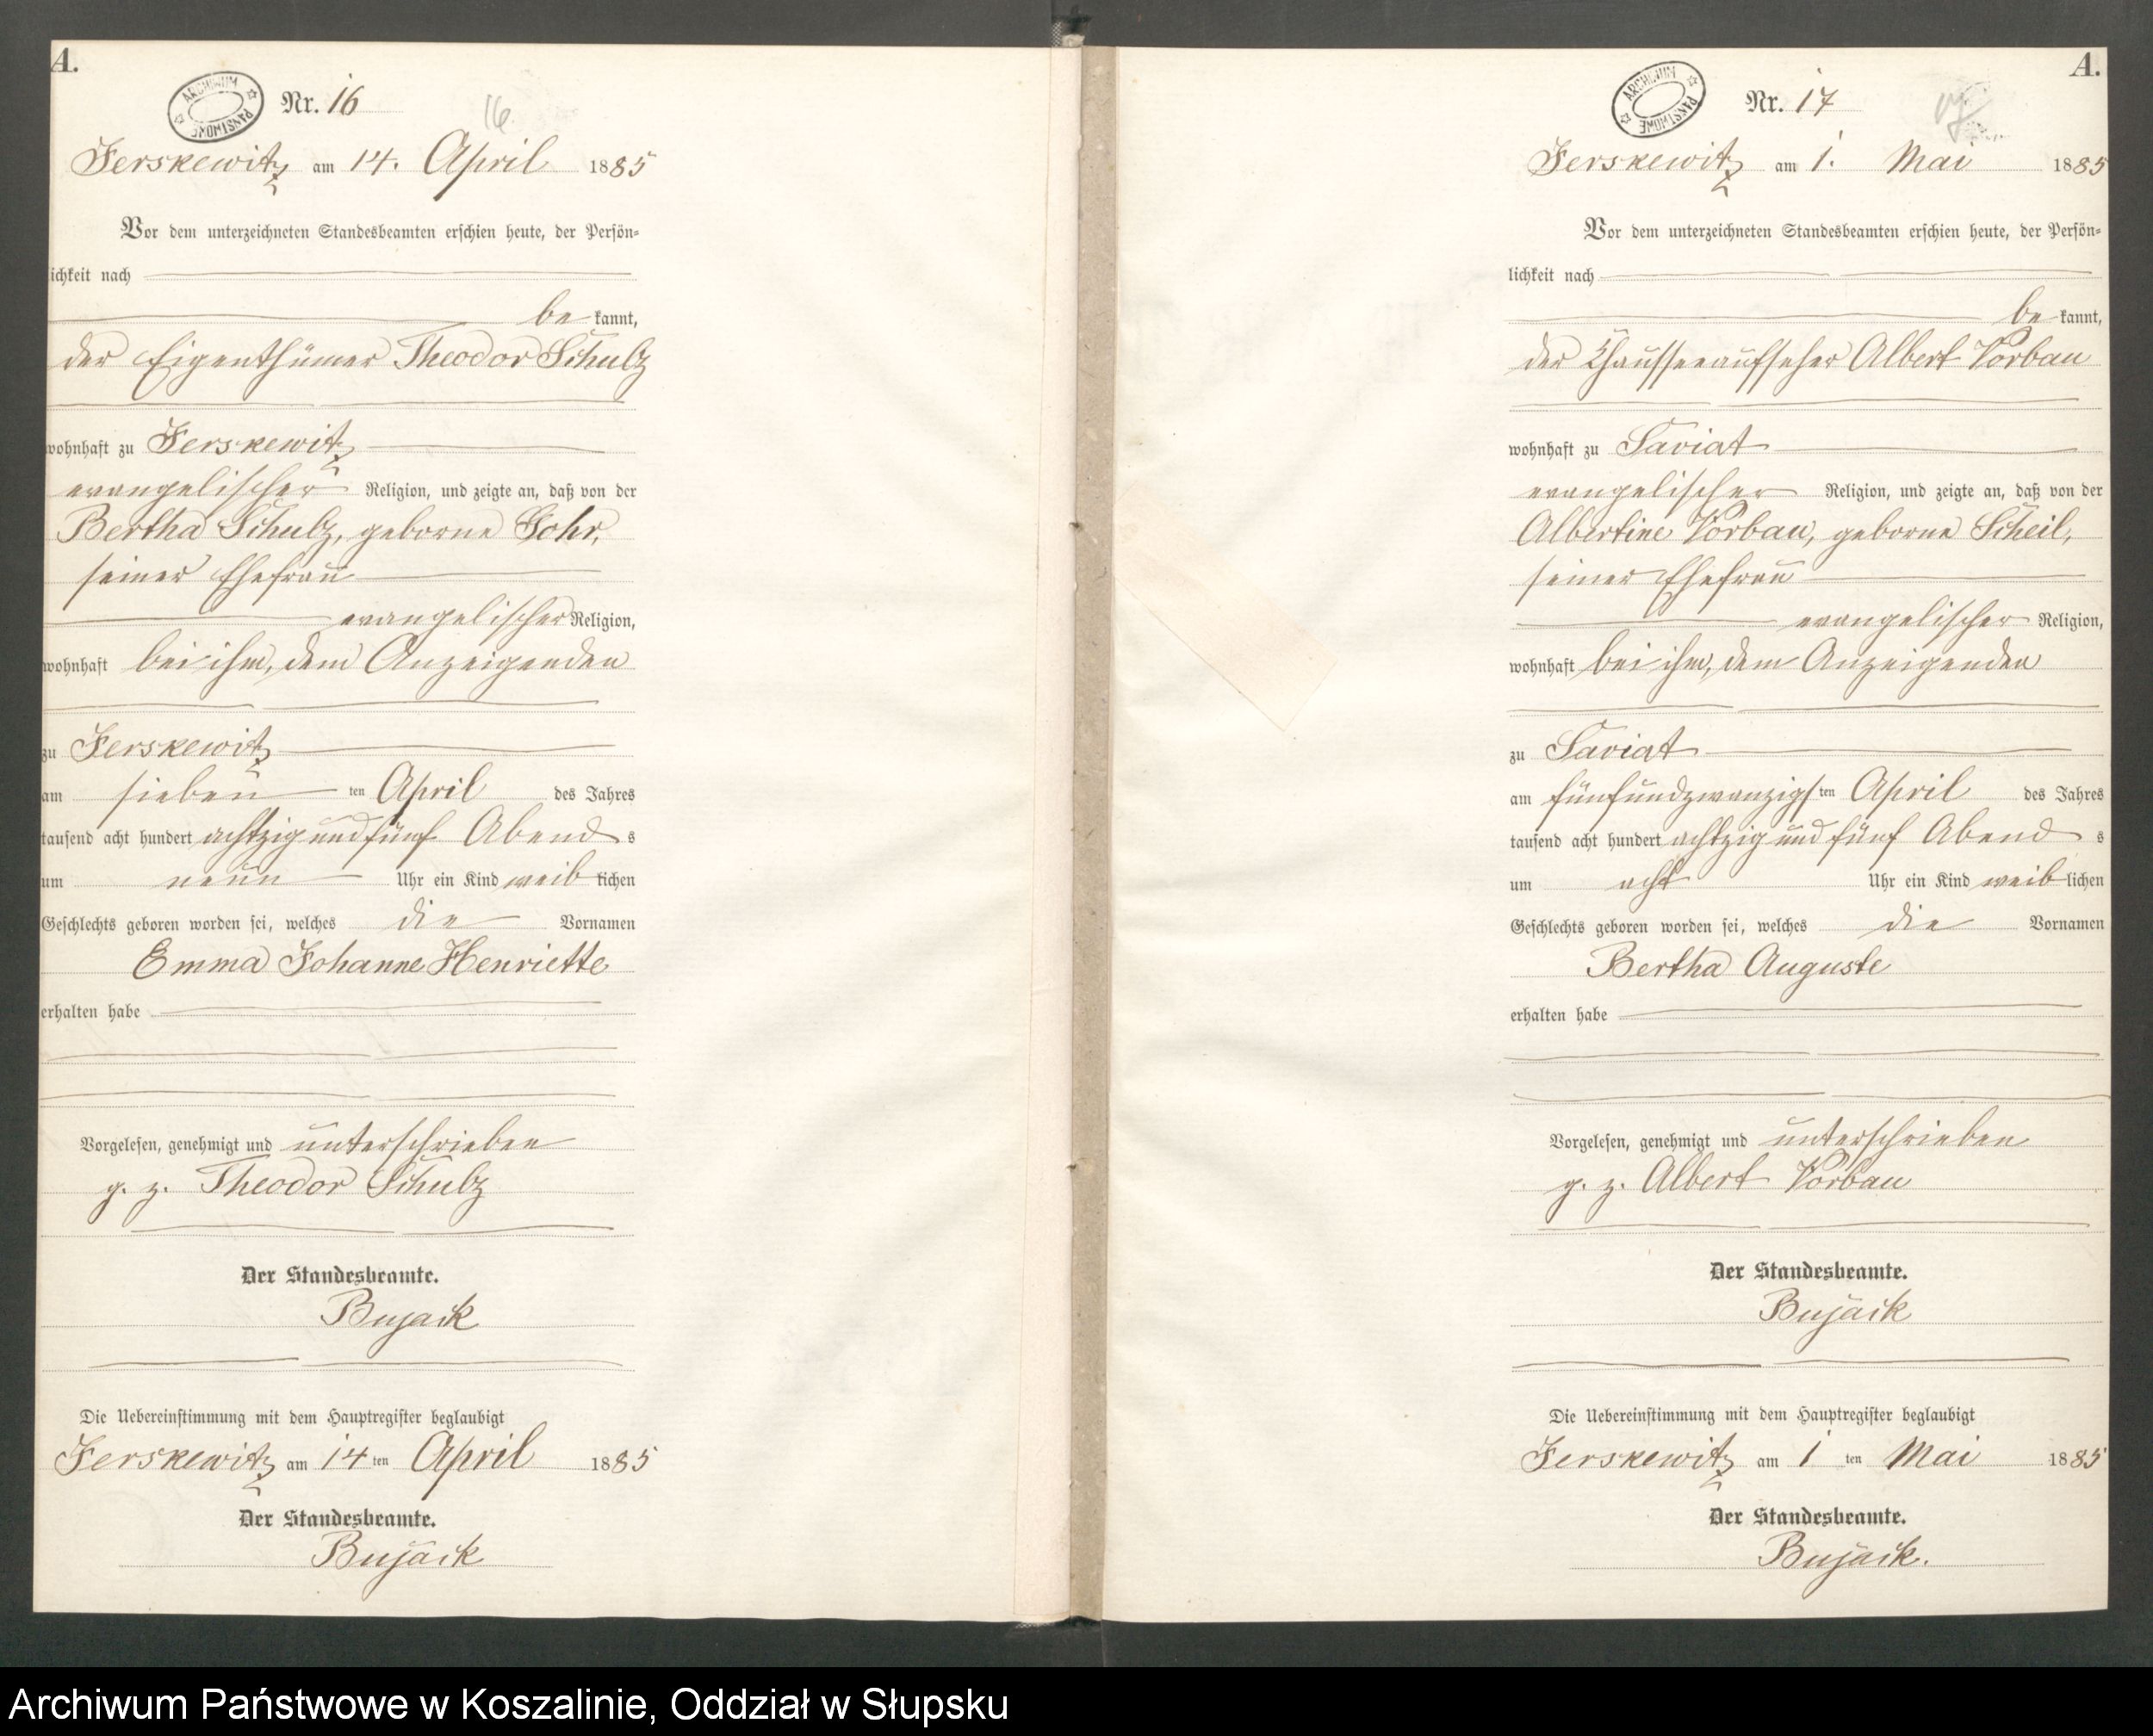 A.
ARCHIWUM PAŃSTWOWE
Nr. 16
16
Jerskewitz am 14. April 1885
Vor dem unterzeichneten Standesbeamten erschien heute, der Persön-
lichkeit nach
be kannt,
der Eigenthümer Theodor Schulz
wohnhaft zu Jerskewitz
evangelischer Religion, und zeigte an, daß von der
Bertha Schulz, geborne Gohr,
seiner Ehefrau
evangelischer Religion,
wohnhaft bei ihm, dem Anzeigenden
zu Jerskewitz
am sieben ten April des Jahres
tausend acht hundert achtzig und fünf Abend s
um neun Uhr ein Kind weib lichen
Geschlechts geboren worden sei, welches die Vornamen
Emma Johanne Henriette
erhalten habe
Vorgelesen, genehmigt und unterschrieben
g. z. Theodor Schulz
Der Standesbeamte.
Bujack
Die Uebereinstimmung mit dem Hauptregister beglaubigt
Jerskewitz am 14 ten April 1885
Der Standesbeamte.
Bujack
A.
ARCHIWUM PAŃSTWOWE
Nr. 17
17
Jerskewitz am 1. Mai 1885
Vor dem unterzeichneten Standesbeamten erschien heute, der Persön-
lichkeit nach
be kannt,
der Chausseeaufseher Albert Vorbau
wohnhaft zu Saviat
evangelischer Religion, und zeigte an, daß von der
Albertine Vorbau, geborne Scheil,
seiner Ehefrau
evangelischer Religion,
wohnhaft bei ihm, dem Anzeigenden
zu Saviat
am fünfundzwanzigs ten April des Jahres
tausend acht hundert achtzig und fünf Abend s
um acht Uhr ein Kind weib lichen
Geschlechts geboren worden sei, welches die Vornamen
Bertha Auguste
erhalten habe
Vorgelesen, genehmigt und unterschrieben
g. z. Albert Vorbau
Der Standesbeamte.
Bujack
Die Uebereinstimmung mit dem Hauptregister beglaubigt
Jerskewitz am 1 ten Mai 1885
Der Standesbeamte.
Bujack.
Archiwum Państwowe w Koszalinie, Oddział w Słupsku